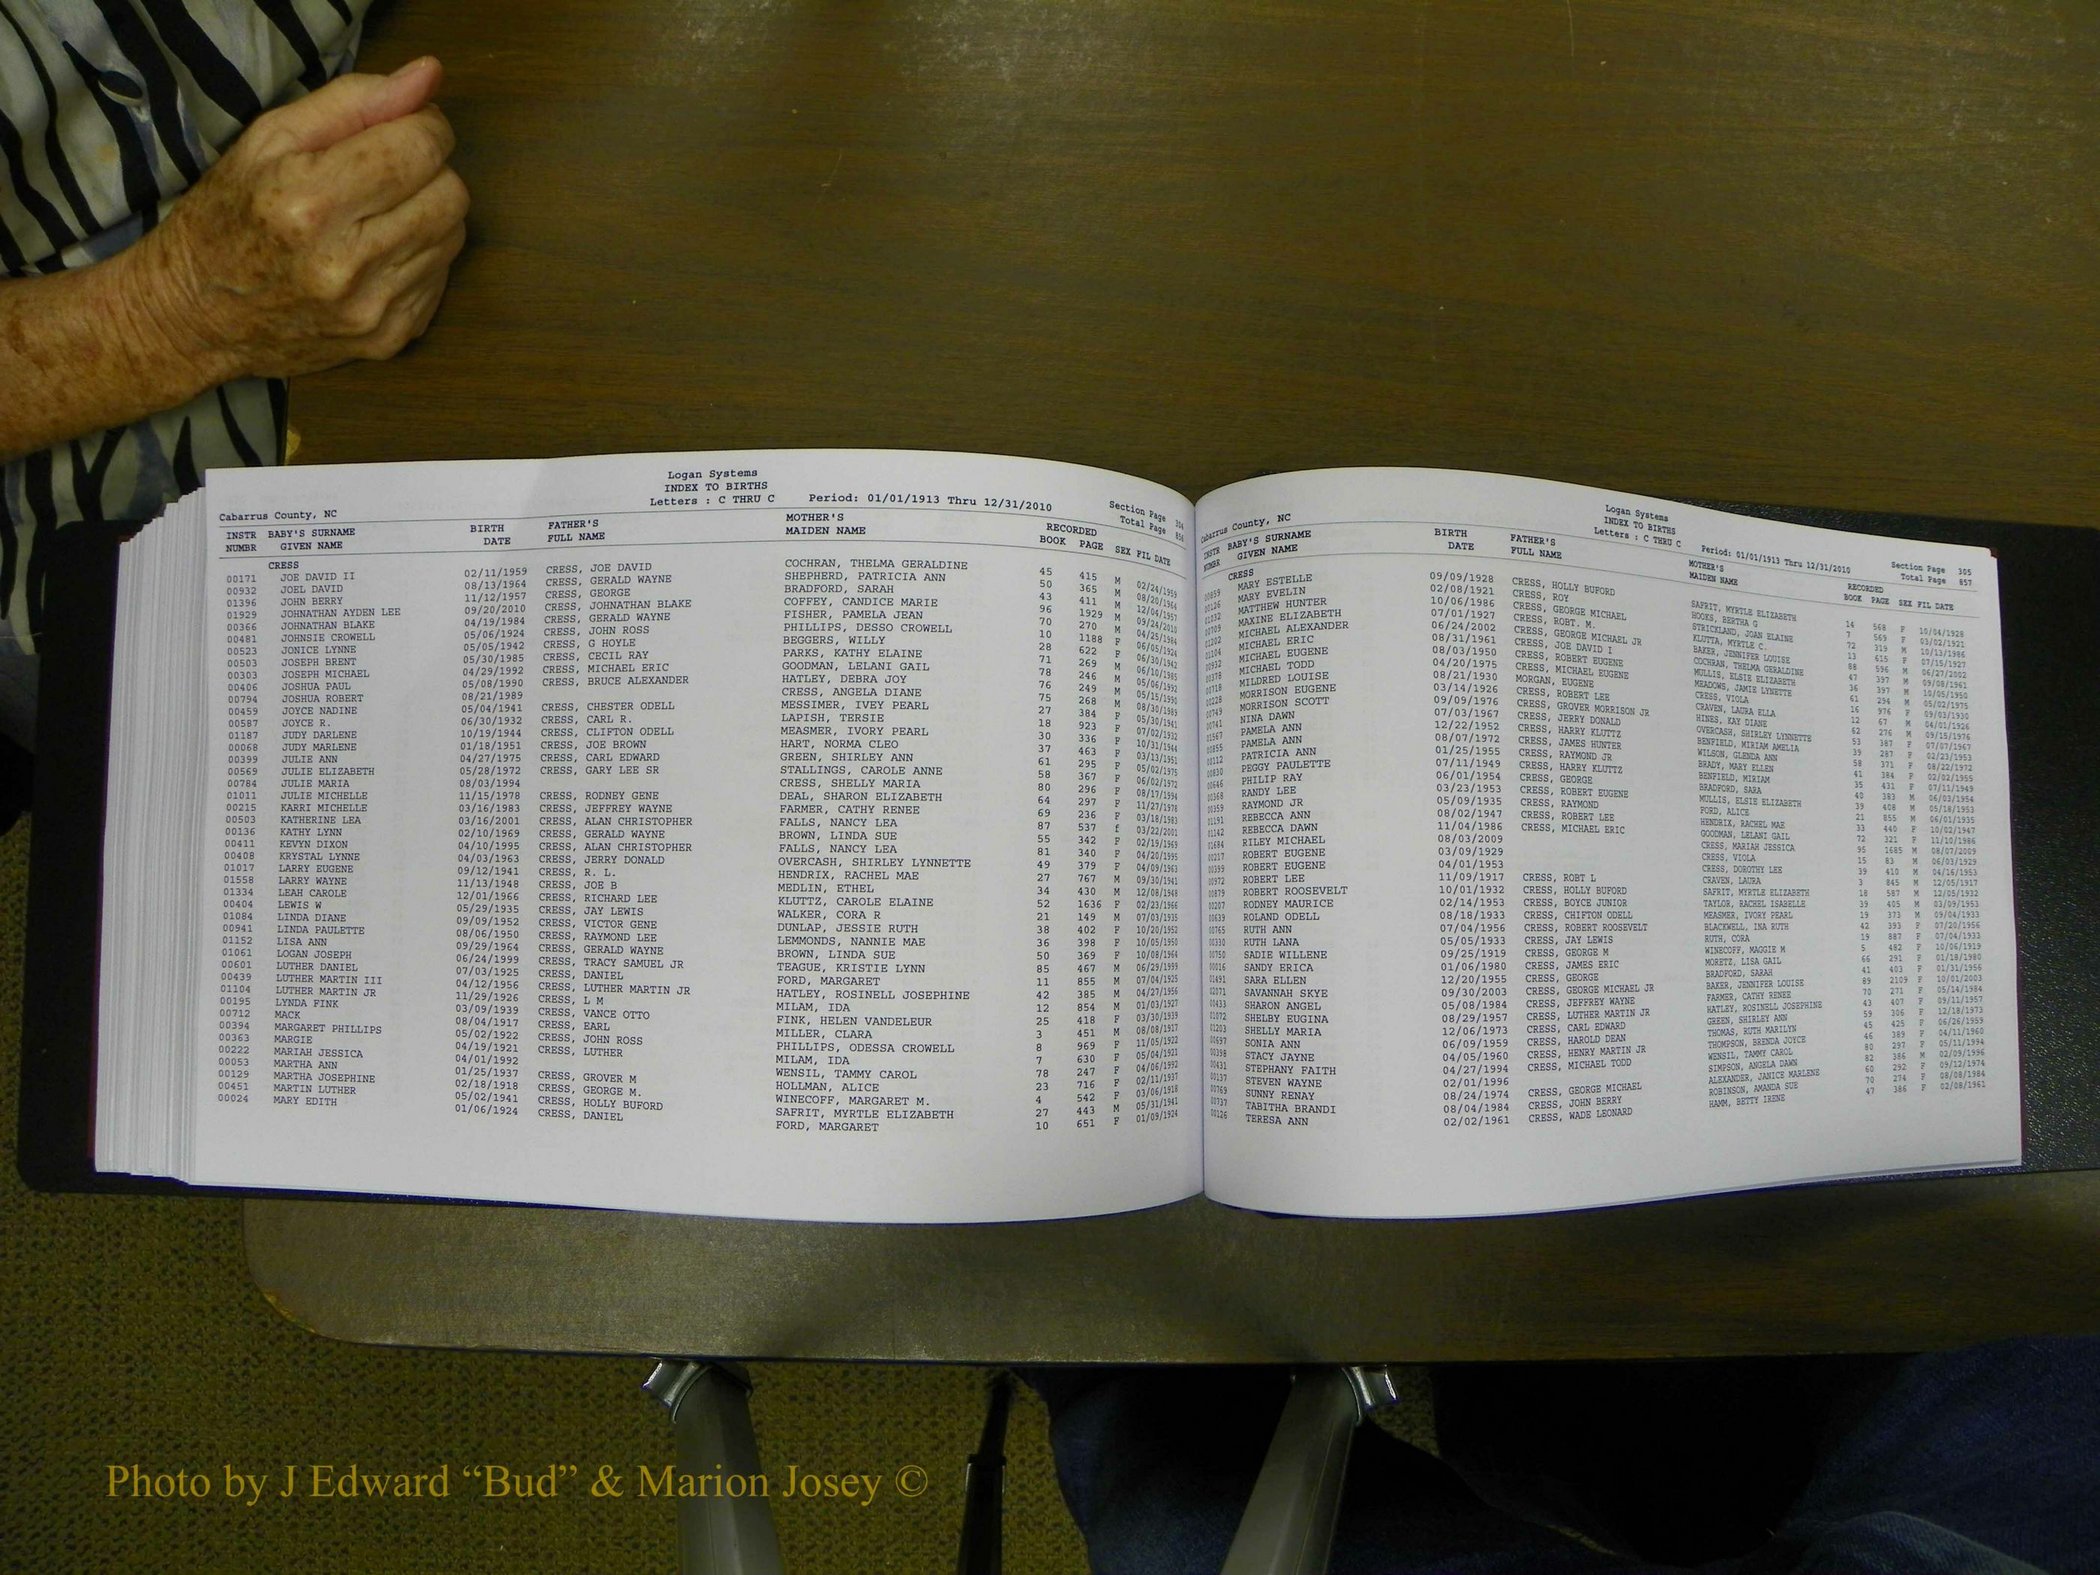 Logan Systems
INDEX TO BIRTHS
Letters : C THRU C Period: 01/01/1913 Thru 12/31/2010
Cabarrus County, NC Section Page 304
Total Page 856
INSTR BABY'S SURNAME BIRTH FATHER'S MOTHER'S RECORDED
NUMBR GIVEN NAME DATE FULL NAME MAIDEN NAME BOOK PAGE SEX FIL DATE
CRESS
00171 JOE DAVID II 02/11/1959 CRESS, JOE DAVID COCHRAN, THELMA GERALDINE 45 415 M 02/24/1959
00932 JOEL DAVID 08/13/1964 CRESS, GERALD WAYNE SHEPHERD, PATRICIA ANN 50 365 M 08/20/1964
01396 JOHN BERRY 11/12/1957 CRESS, GEORGE BRADFORD, SARAH 43 411 M 12/04/1957
01929 JOHNATHAN AYDEN LEE 09/20/2010 CRESS, JOHNATHAN BLAKE COFFEY, CANDICE MARIE 96 1929 M 09/24/2010
00366 JOHNATHAN BLAKE 04/19/1984 CRESS, GERALD WAYNE FISHER, PAMELA JEAN 70 270 M 04/25/1984
00481 JOHNSIE CROWELL 05/06/1924 CRESS, JOHN ROSS PHILLIPS, DESSO CROWELL 10 1188 F 06/05/1924
00523 JONICE LYNNE 05/05/1942 CRESS, G HOYLE BEGGERS, WILLY 28 622 F 06/30/1942
00503 JOSEPH BRENT 05/30/1985 CRESS, CECIL RAY PARKS, KATHY ELAINE 71 269 M 06/10/1985
00303 JOSEPH MICHAEL 04/29/1992 CRESS, MICHAEL ERIC GOODMAN, LELANI GAIL 78 246 M 05/06/1992
00406 JOSHUA PAUL 05/08/1990 CRESS, BRUCE ALEXANDER HATLEY, DEBRA JOY 76 249 M 05/15/1990
00794 JOSHUA ROBERT 08/21/1989 CRESS, ANGELA DIANE 75 268 M 08/30/1989
00459 JOYCE NADINE 05/04/1941 CRESS, CHESTER ODELL MESSIMER, IVEY PEARL 27 384 F 05/30/1941
00587 JOYCE R. 06/30/1932 CRESS, CARL R. LAPISH, TERSIE 18 923 F 07/02/1932
01187 JUDY DARLENE 10/19/1944 CRESS, CLIFTON ODELL MEASMER, IVORY PEARL 30 336 F 10/31/1944
00068 JUDY MARLENE 01/18/1951 CRESS, JOE BROWN HART, NORMA CLEO 37 463 F 03/13/1951
00399 JULIE ANN 04/27/1975 CRESS, CARL EDWARD GREEN, SHIRLEY ANN 61 295 F 05/02/1975
00569 JULIE ELIZABETH 05/28/1972 CRESS, GARY LEE SR STALLINGS, CAROLE ANNE 58 367 F 06/02/1972
00784 JULIE MARIA 08/03/1994 CRESS, SHELLY MARIA 80 296 F 08/17/1994
01011 JULIE MICHELLE 11/15/1978 CRESS, RODNEY GENE DEAL, SHARON ELIZABETH 64 297 F 11/27/1978
00215 KARRI MICHELLE 03/16/1983 CRESS, JEFFREY WAYNE FARMER, CATHY RENEE 69 236 F 03/18/1983
00503 KATHERINE LEA 03/16/2001 CRESS, ALAN CHRISTOPHER FALLS, NANCY LEA 87 537 f 03/22/2001
00136 KATHY LYNN 02/10/1969 CRESS, GERALD WAYNE BROWN, LINDA SUE 55 342 F 02/19/1969
00411 KEVYN DIXON 04/10/1995 CRESS, ALAN CHRISTOPHER FALLS, NANCY LEA 81 340 F 04/20/1995
00408 KRYSTAL LYNNE 04/03/1963 CRESS, JERRY DONALD OVERCASH, SHIRLEY LYNNETTE 49 379 F 04/09/1963
01017 LARRY EUGENE 09/12/1941 CRESS, R. L. HENDRIX, RACHEL MAE 27 767 M 09/30/1941
01558 LARRY WAYNE 11/13/1948 CRESS, JOE B MEDLIN, ETHEL 34 430 M 12/08/1948
01334 LEAH CAROLE 12/01/1966 CRESS, RICHARD LEE KLUTTZ, CAROLE ELAINE 52 1636 F 02/23/1966
00404 LEWIS W 05/29/1935 CRESS, JAY LEWIS WALKER, CORA R 21 149 M 07/03/1935
01084 LINDA DIANE 09/09/1952 CRESS, VICTOR GENE DUNLAP, JESSIE RUTH 38 402 F 10/20/1952
00941 LINDA PAULETTE 08/06/1950 CRESS, RAYMOND LEE LEMMONDS, NANNIE MAE 36 398 F 10/05/1950
01152 LISA ANN 09/29/1964 CRESS, GERALD WAYNE BROWN, LINDA SUE 50 369 F 10/08/1964
01061 LOGAN JOSEPH 06/24/1999 CRESS, TRACY SAMUEL JR TEAGUE, KRISTIE LYNN 85 467 M 06/29/1999
00601 LUTHER DANIEL 07/03/1925 CRESS, DANIEL FORD, MARGARET 11 855 M 07/04/1925
00439 LUTHER MARTIN III 04/12/1956 CRESS, LUTHER MARTIN JR HATLEY, ROSINELL JOSEPHINE 42 385 M 04/27/1956
01104 LUTHER MARTIN JR 11/29/1926 CRESS, L M MILAM, IDA 12 854 M 01/03/1927
00195 LYNDA FINK 03/09/1939 CRESS, VANCE OTTO FINK, HELEN VANDELEUR 25 418 F 03/30/1939
00712 MACK 08/04/1917 CRESS, EARL MILLER, CLARA 3 451 M 08/08/1917
00394 MARGARET PHILLIPS 05/02/1922 CRESS, JOHN ROSS PHILLIPS, ODESSA CROWELL 8 969 F 11/05/1922
00363 MARGIE 04/19/1921 CRESS, LUTHER MILAM, IDA 7 630 F 05/04/1921
00222 MARIAH JESSICA 04/01/1992 WENSIL, TAMMY CAROL 78 247 F 04/06/1992
00053 MARTHA ANN 01/25/1937 CRESS, GROVER M HOLLMAN, ALICE 23 716 F 02/11/1937
00129 MARTHA JOSEPHINE 02/18/1918 CRESS, GEORGE M. WINECOFF, MARGARET M. 4 542 F 03/06/1918
00451 MARTIN LUTHER 05/02/1941 CRESS, HOLLY BUFORD SAFRIT, MYRTLE ELIZABETH 27 443 M 05/31/1941
00024 MARY EDITH 01/06/1924 CRESS, DANIEL FORD, MARGARET 10 651 F 01/09/1924
Logan Systems
INDEX TO BIRTHS
Letters : C THRU C Period: 01/01/1913 Thru 12/31/2010
Cabarrus County, NC Section Page 305
Total Page 857
INSTR BABY'S SURNAME BIRTH FATHER'S MOTHER'S RECORDED
NUMBR GIVEN NAME DATE FULL NAME MAIDEN NAME BOOK PAGE SEX FIL DATE
CRESS
00859 MARY ESTELLE 09/09/1928 CRESS, HOLLY BUFORD SAFRIT, MYRTLE ELIZABETH 14 568 F 10/04/1928
00126 MARY EVELIN 02/08/1921 CRESS, ROY HOOKS, BERTHA G 7 569 F 03/02/1921
01032 MATTHEW HUNTER 10/06/1986 CRESS, GEORGE MICHAEL STRICKLAND, JOAN ELAINE 72 319 M 10/13/1986
00709 MAXINE ELIZABETH 07/01/1927 CRESS, ROBT. M. KLUTTA, MYRTLE C. 13 615 F 07/15/1927
01202 MICHAEL ALEXANDER 06/24/2002 CRESS, GEORGE MICHAEL JR BAKER, JENNIFER LOUISE 88 596 M 06/27/2002
01104 MICHAEL ERIC 08/31/1961 CRESS, JOE DAVID I COCHRAN, THELMA GERALDINE 47 397 M 09/08/1961
00932 MICHAEL EUGENE 08/03/1950 CRESS, ROBERT EUGENE MULLIS, ELSIE ELIZABETH 36 397 M 10/05/1950
00378 MICHAEL TODD 04/20/1975 CRESS, MICHAEL EUGENE MEADOWS, JAMIE LYNETTE 61 294 M 05/02/1975
00718 MILDRED LOUISE 08/21/1930 MORGAN, EUGENE CRESS, VIOLA 16 976 F 09/03/1930
00228 MORRISON EUGENE 03/14/1926 CRESS, ROBERT LEE CRAVEN, LAURA ELLA 12 67 M 04/01/1926
00749 MORRISON SCOTT 09/09/1976 CRESS, GROVER MORRISON JR HINES, KAY DIANE 62 276 M 09/15/1976
00741 NINA DAWN 07/03/1967 CRESS, JERRY DONALD OVERCASH, SHIRLEY LYNNETTE 53 387 F 07/07/1967
01567 PAMELA ANN 12/22/1952 CRESS, HARRY KLUTTZ BENFIELD, MIRIAM AMELIA 39 287 F 02/23/1953
00855 PAMELA ANN 08/07/1972 CRESS, JAMES HUNTER WILSON, GLENDA ANN 58 371 F 08/22/1972
00112 PATRICIA ANN 01/25/1955 CRESS, RAYMOND JR BRADY, MARY ELLEN 41 384 F 02/02/1955
00830 PEGGY PAULETTE 07/11/1949 CRESS, HARRY KLUTTZ BENFIELD, MIRIAM 35 431 F 07/11/1949
00646 PHILIP RAY 06/01/1954 CRESS, GEORGE BRADFORD, SARA 40 383 M 06/03/1954
00368 RANDY LEE 03/23/1953 CRESS, ROBERT EUGENE MULLIS, ELSIE ELIZABETH 39 408 M 05/18/1953
00359 RAYMOND JR 05/09/1935 CRESS, RAYMOND FORD, ALICE 21 855 M 06/01/1935
01191 REBECCA ANN 08/02/1947 CRESS, ROBERT LEE HENDRIX, RACHEL MAE 33 440 F 10/02/1947
01142 REBECCA DAWN 11/04/1986 CRESS, MICHAEL ERIC GOODMAN, LELANI GAIL 72 321 F 11/10/1986
01684 RILEY MICHAEL 08/03/2009 CRESS, MARIAH JESSICA 95 1685 M 08/07/2009
00217 ROBERT EUGENE 03/09/1929 CRESS, VIOLA 15 83 M 06/03/1929
00399 ROBERT EUGENE 04/01/1953 CRESS, DOROTHY LEE 39 410 M 04/16/1953
00972 ROBERT LEE 11/09/1917 CRESS, ROBT L CRAVEN, LAURA 3 845 M 12/05/1917
00879 ROBERT ROOSEVELT 10/01/1932 CRESS, HOLLY BUFORD SAFRIT, MYRTLE ELIZABETH 18 587 M 12/05/1932
00207 RODNEY MAURICE 02/14/1953 CRESS, BOYCE JUNIOR TAYLOR, RACHEL ISABELLE 39 405 M 03/09/1953
00639 ROLAND ODELL 08/18/1933 CRESS, CHIFTON ODELL MEASMER, IVORY PEARL 19 373 M 09/04/1933
00765 RUTH ANN 07/04/1956 CRESS, ROBERT ROOSEVELT BLACKWELL, INA RUTH 42 393 F 07/20/1956
00330 RUTH LANA 05/05/1933 CRESS, JAY LEWIS RUTH, CORA 19 887 F 07/04/1933
00750 SADIE WILLENE 09/25/1919 CRESS, GEORGE M WINECOFF, MAGGIE M 5 482 F 10/06/1919
00016 SANDY ERICA 01/06/1980 CRESS, JAMES ERIC MORETZ, LISA GAIL 66 291 F 01/18/1980
01491 SARA ELLEN 12/20/1955 CRESS, GEORGE BRADFORD, SARAH 41 403 F 01/31/1956
02071 SAVANNAH SKYE 09/30/2003 CRESS, GEORGE MICHAEL JR BAKER, JENNIFER LOUISE 89 2109 F 10/01/2003
00433 SHARON ANGEL 05/08/1984 CRESS, JEFFREY WAYNE FARMER, CATHY RENEE 70 271 F 05/14/1984
01072 SHELBY EUGINA 08/29/1957 CRESS, LUTHER MARTIN JR HATLEY, ROSINELL JOSEPHINE 43 407 F 09/11/1957
01203 SHELLY MARIA 12/06/1973 CRESS, CARL EDWARD GREEN, SHIRLEY ANN 59 306 F 12/18/1973
00697 SONIA ANN 06/09/1959 CRESS, HAROLD DEAN THOMAS, RUTH MARILYN 45 425 F 06/26/1959
00398 STACY JAYNE 04/05/1960 CRESS, HENRY MARTIN JR THOMPSON, BRENDA JOYCE 46 389 F 04/11/1960
00431 STEPHANY FAITH 04/27/1994 CRESS, MICHAEL TODD WENSIL, TAMMY CAROL 80 297 F 05/11/1994
00137 STEVEN WAYNE 02/01/1996 SIMPSON, ANGELA DAWN 82 386 M 02/09/1996
00769 SUNNY RENAY 08/24/1974 CRESS, GEORGE MICHAEL ALEXANDER, JANICE MARLENE 60 292 F 09/12/1974
00737 TABITHA BRANDI 08/04/1984 CRESS, JOHN BERRY ROBINSON, AMANDA SUE 70 274 F 08/08/1984
00126 TERESA ANN 02/02/1961 CRESS, WADE LEONARD HAMM, BETTY IRENE 47 386 F 02/08/1961
Photo by J Edward “Bud” & Marion Josey ©